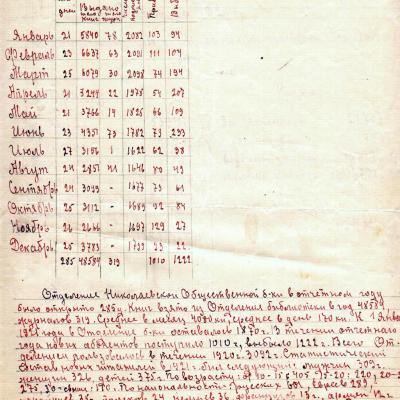 дней Выдано
книг
Январь 21 5840 78 2082 103 94
Февраль 23 6637 63 2091 111 104
Март 25 6079 30 2098 74 194
Апрель 21 3244 22 1975 54 207
Май 21 3766 14 1825 66 109
Июнь 23 4351 73 1782 73 233
Июль 27 3156 1 1622 62 38
Август 24 2857 41 1646 80 43
Сентябрь 24 3099 - 1677 73 61
Октябрь 25 3112 - 1689 92 84
Ноябрь 26 2666 - 1697 129 27
Декабрь 25 3783 - 1799 93 22
285 48589 319 1010 1222
Отделение Николаевской Общественной б-ки в отчетном году
было открыто 285 д. Книг взято из Отделения библиотеки в год 48589
журналов 319. Среднее в месяц 4080 книг, среднее в день 170 кн. К 1 Янва
1921 года в Отделение б-ки оставалось 1870 ч. В течении отчетнаго
года новых абонентов поступило 1010 ч, выбыло 1222. Всего От
делением пользовалось в течении 1920 г. 3092 ч. Статистический
состав новых читателей в 1921 г. был следующий: мужчин 309.
женщин 326, детей 375. По возрасту: от 10-15 405, 15-20: 220, 20-
По национальности: русских 601, евреев 289,